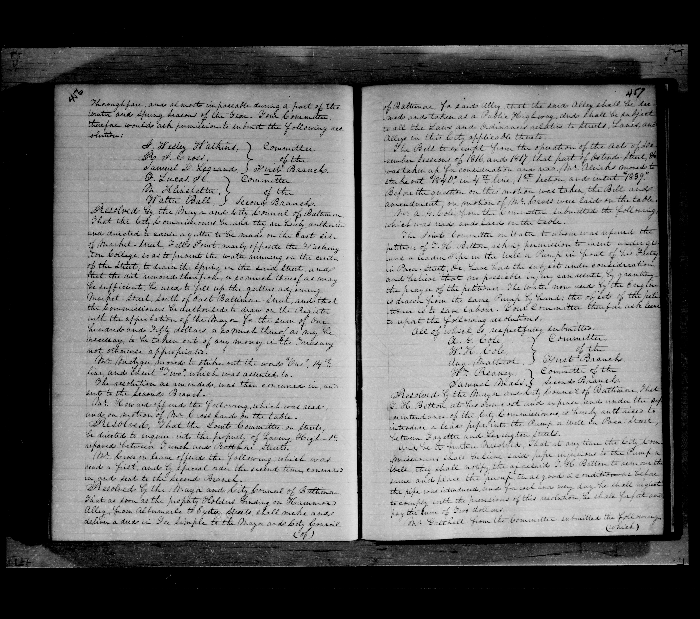 456
Thoroughfare, and almost impassable during a part of the
water and Spring Seasons of the Year. Your Committee
therefore would ask permission to submit the following res
olution:
J. Wesley Watkins, Committee
R. S. Cross, of the
Samuel D. Legrand First Branch.
Committee
of the
Walter Ball Second Branch.
Resolved by the Mayor and City Council of Baltimore
That the City Commissioners be and they are hereby authorized
and directed to cause a gutter to be made on the East side
of Market Street Fells Point nearly opposite the
so as to prevent the water running on the center
of the Street, to leave the Spring in the said Street, and
that the dirt and
be sufficient, be used to fill up the gullies adjoining
Market Street, South of East Baltimore Street, and that
the Commissioners be authorized to draw on the Register
with the approbation of the Mayor for the sum of One
hundred and Fifty dollars, or so much thereof as may be
necessary, to be taken out of any money in the Treasury
not otherwise appropriated.
moved to strike out the words "One" 14th
line, and insert "Two", which was assented to.
The resolution as amended, was then concurred in and
sent to the Second Branch.
Mr. Howard offered the following, which was read,
and on motion of Mr. Cross laid on the table.
Resolved, That the Joint Committee on Streets,
be directed to inquire into the propriety of having High St.
repaved between French and Streets.
Mr. Cross on leave offered the following, which was
read a first, and by special order the second time, concurred
in, and sent to the Second Branch.
Resolved by the Mayor and City Council of Baltimore
That as soon as the property Holders binding on Hammond
Alley, from Albemarle to Exeter Streets shall make and
deliver a deed in Fee Simple to the Mayor and City Council
(of)
457
of Baltimore for said Alley, that the said Alley shall be dec
lared and taken as a Public Highway, and shall be subject
to all the Laws and Ordinances relative to Streets, Lanes, and
Alleys in this City applicable thereto.
The Bill to exempt from the operation of the Act of
Sessions of 1816 and 1817 that part of Street, &c
was taken up for consideration and read. Mr. moved to
strike out "1840" in 4th line, 1st section, and insert "1839."
Before the question on this motion was taken, the Bill and
amendment, on motion of Mr. Cross were laid on the table.
Mr. A. G. Cole from the Committee submitted the following,
which was read and laid on the table.
The Joint Committee on Water to whom was referred the
petition of T. H. Bolton asking permission to insert under
ground a leader pipe in the well & Pump in front of his House
in Pine Street, &c. have had the subject under consideration,
and believe that no possible injury can arise by granting
the prayer of the petitioner. The Water now used by the
is drawn from the same Pump by hand, the object of the
is to save labour. Your Committee therefore ask leave
to report the following resolution.
All of which is respectfully submitted.
A. G. Cole, Committee
W. H. Cole of the
Aug. Mathiot First Branch
Wm. Reaney, Committee of the
Samuel Mass Second Branch
Resolved by the Mayor and City Council of Baltimore, That
T. H. Bolton at his own cost and expense and under the su
perintendence of the City Commissioners is hereby authorized to
introduce a lead pipe into the Pump & Well in Pine Street,
between Fayette and Lexington Streets.
And be it further Resolved That at any time the City Com
missioners shall believe said pipe injurious to the Pump &
Well, they shall notify the aforesaid T. H. Bolton to remove the
same and place the pump in as good a condition as before
the pipe was introduced, and if he shall neglect
to comply with the provisions of this resolution he shall forfeit and
pay the sum of Two dollars.
Mr. from the Committee submitted the following,
(which)